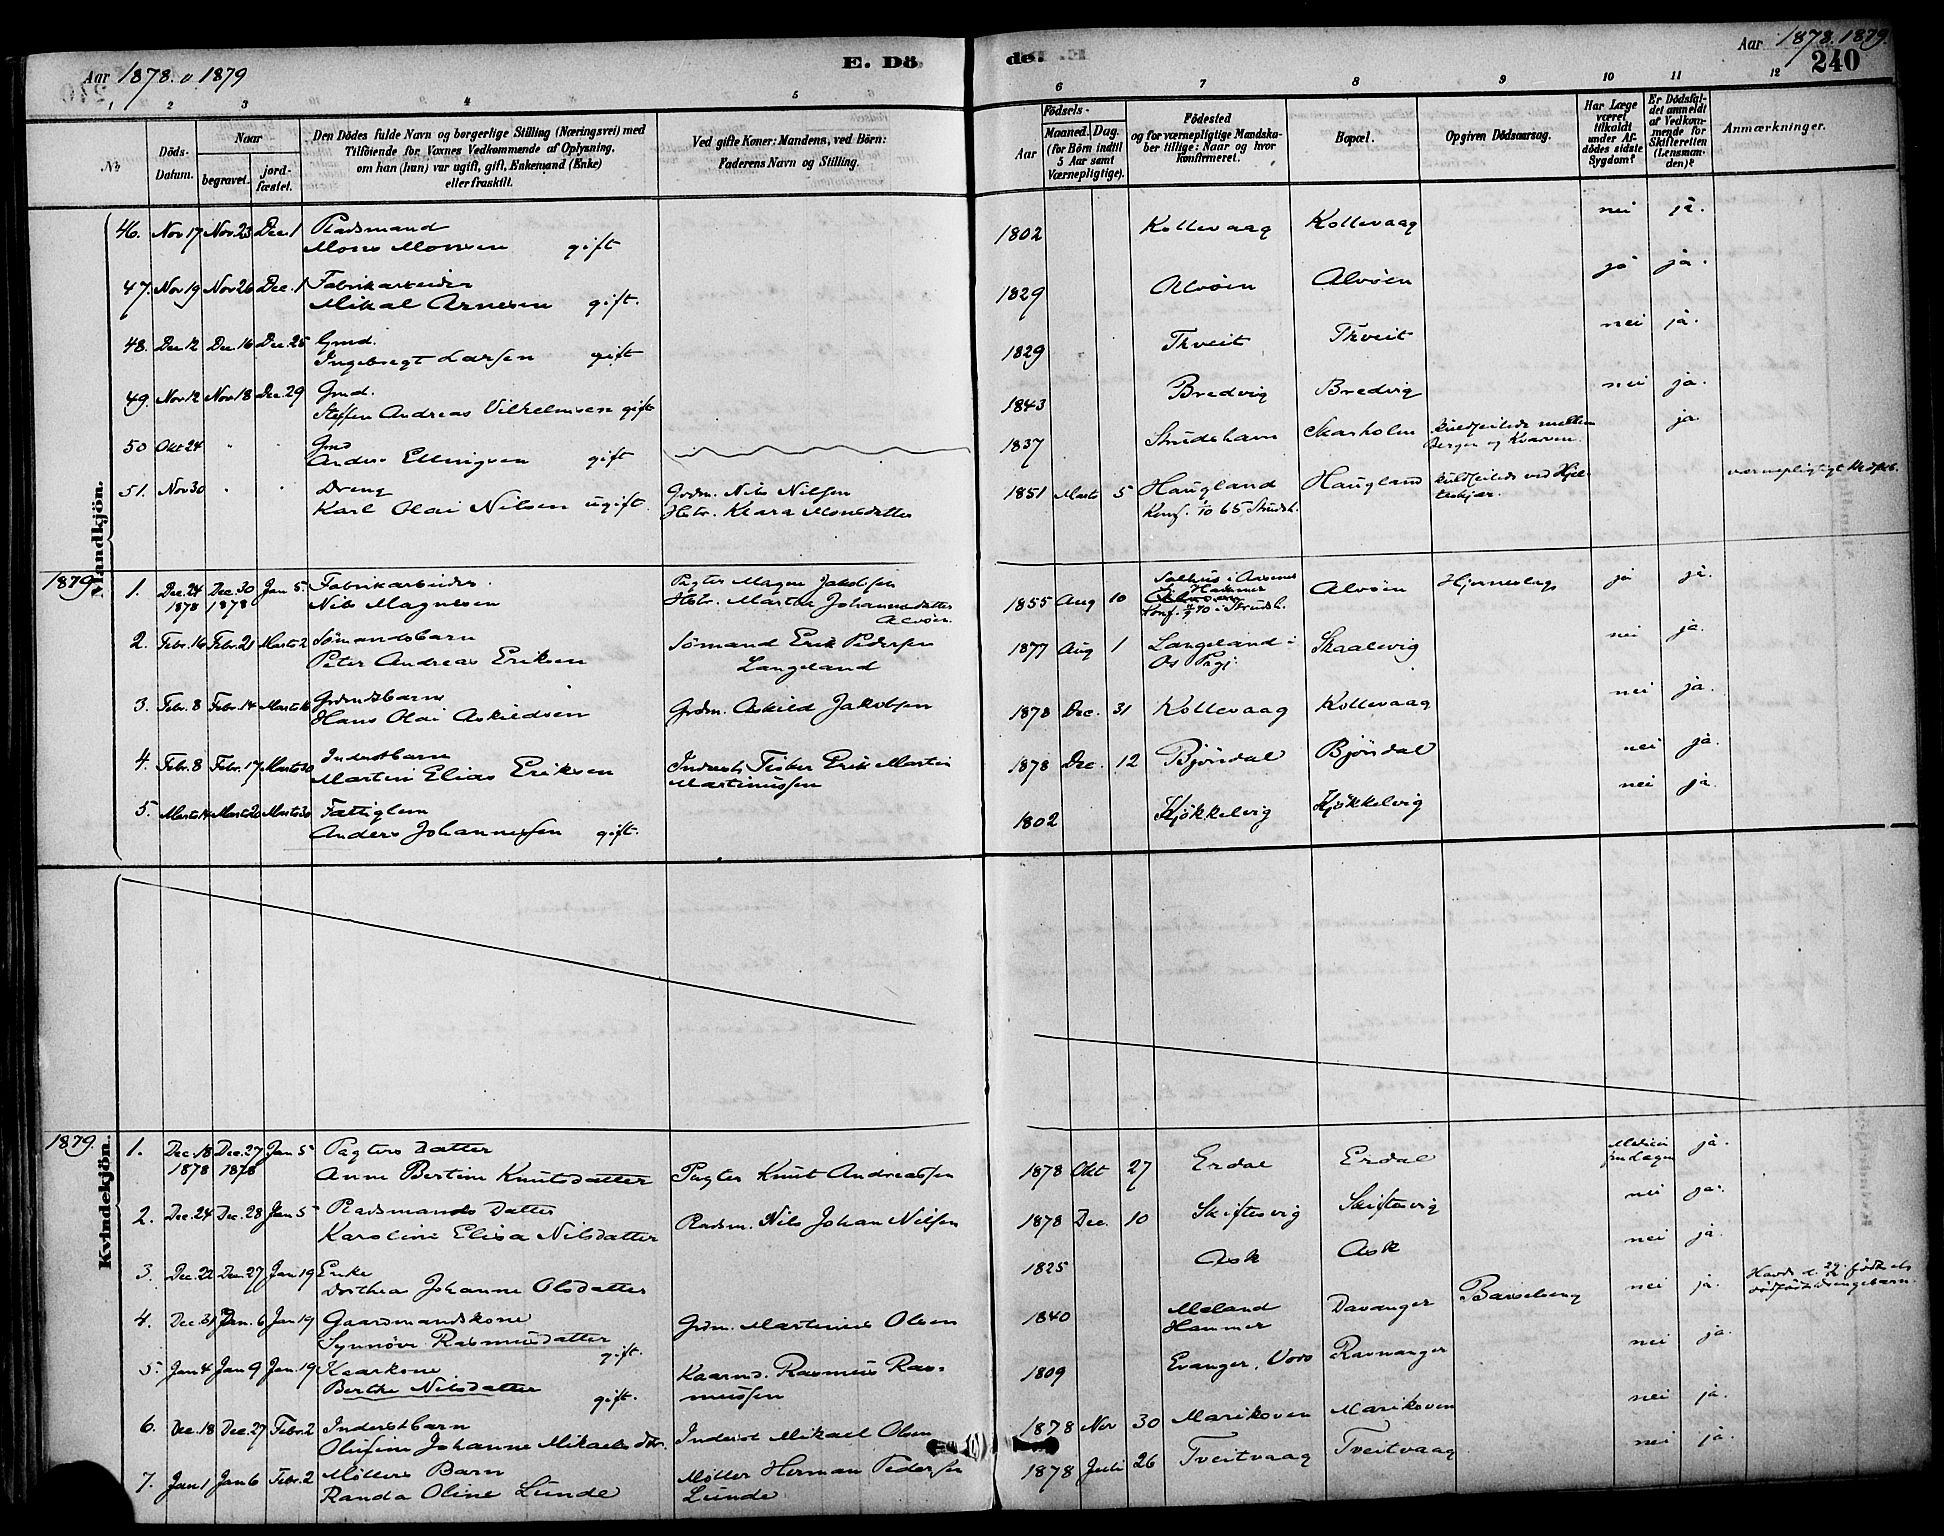 Aar 1878 o 1879 E. Dö de. Aar 1878. 1879.
240
1 2 3 4 5 6 7 8 9 10 11 12
No
Döds-Datum.
Naar
begravet.
jord-fæstet.
Den Dödes fulde Navn og borgerlige Stilling (Næringsvei) med
Tilföiende for Voxnes Vedkommende af Oplysning,
om han (hun) var ugift, gift, Enkemand (Enke)
eller fraskilt.
Ved gifte Koner: Mandens, ved Börn:
Faderens Navn og Stilling.
Födsels-
Aar
Maaned. Dag.
(for Börn indtil
5 Aar samt
Værnepligtige).
Födested
og for værnepligtige Mandska-
ber tillige: Naar og hvor
konfirmeret.
Bopæl.
Opgiven Dödsaarsag.
Har Læge
været
tilkaldt
under Af-
dödes sidste
Sygdom?
Er Dödsfal-
det anmeldt
af Vedkom-
mende for
Skifteretten
(Lensman-
den)?
Anmærkninger.
Mandkjön.
46. Nov 17 Nov. 23 Dec. 1 Pladsmand
Mons Monsen gift 1802 Kollevaag Kollevaag nei ja.
47. Nov 19 Nov 26 Dec. 1 Fabrikarbeider
Mikal Arnesen gift. 1829 Alvöen Alvöen ja ja.
48. Dec 12 Dec. 16 Dec. 25 Gmd.
Ingebregt Larsen gift 1829 Thveit Thveit nei ja.
49. Nov 12 Nov 18 Dec. 29 Gmd.
Steffen Andreas Vilhelmsen gift 1843 Bredvig Bredvig nei ja.
50 Okt 24 " " Gmd
Anders Ellingsen gift 1837 Strudshavn Skarholm kuldseilede mellem
Bergen og Kvarven. ja
51. Nov 30 " " Dreng
Karl Olai Nilsen ugift. Grdm. Nils Nilsen
Hstr. Klara Monsdatter 1851 Marts 5 Haugland
Konf. 1/10 65, Strudsh. Haugland kuldseilede ved Hjel-
teskjær. værnepligtigt
1879 1. Dec. 24 Dec. 30 Jan 5. Fabrikarbeider.
1878 1878 Nils Magnesen Pagter Magne Jakobsen
Hstr. Martha Johannesdatter
Alvöen. 1855 Aug 10 Salhus i
Hammer
Konf. 70 i Strudsh. Alvöen Hjerneslag ja ja.
2. Febr. 16 Febr. 21 Marts 2 Sömandsbarn
Peter Andreas Eriksen Sömand Erik Pedersen
Langeland 1877 Aug 1 Langeland i
Os Prgj. Skaalevig nei ja.
3. Febr. 8 Febr. 14 Marts 16 Grdmdsbarn
Hans Olai Askildsen Grdm. Askild Jakobsen 1878 Dec. 31 Kollevaag Kollevaag nei ja.
4. Febr. 8 Febr. 17 Marts 30 Inderstbarn
Martin Elias Eriksen Inderst, Fisker Erik Martin
Martinussen 1878 Dec. 12 Björndal Björndal nei ja.
5. Marts 14 Marts 20 Marts 30 Fattiglem
Anders Johannessen gift. 1802 Kjökkelvig Kjökkelvig nei ja.
1879. Kvindekjön.
1. Dec. 18 Dec. 27 Jan 5 Pagters Datter
1878 1878 Anne Bertine Knutsdatter Pagter Knut Andreassen 1878 Okt 27 Erdal Erdal ja.
2. Dec. 24 Dec. 28 Jan 5 Pladsmands Datter
Karoline Elisa Nilsdatter Pladsm. Nils Johan Nilsen 1878 Dec. 10 Skiftesvig Skiftesvig nei ja.
3. Dec. 22 Dec. 27 Jan. 19 Enke
Dorthea Johanne Olsdatter 1825 Ask Ask nei ja.
4. Dec 31 Jan. 6 Jan 19 Gaardmandskone
Synnöve Rasmusdatter gift. Grdm. Martinus Olsen 1840 Meland
Hammer Davanger Barselseng nei ja. Havde d. 29. födt et
dödfödt Drengebarn.
5. Jan 4 Jan 9 Jan. 19 Kaarkone
Berthe Nilsdatter gift. Kaarmd. Rasmus Ras-
mussen 1809 Evanger, Voss Ravnanger nei ja.
6. Dec. 18 Dec. 27 Febr. 2 Inderstbarn
Olufine Johanne Mikaelsdtr. Inderst Mikael Olsen 1878 Nov 30 Marikoven Marikoven nei ja.
7. Jan 1 Jan 6 Febr. 2 Möllers Barn
Randa Oline Lunde Möller Herman Pedersen
Lunde 1878 Juli 26 Tveitvaag Tveitvaag nei ja.